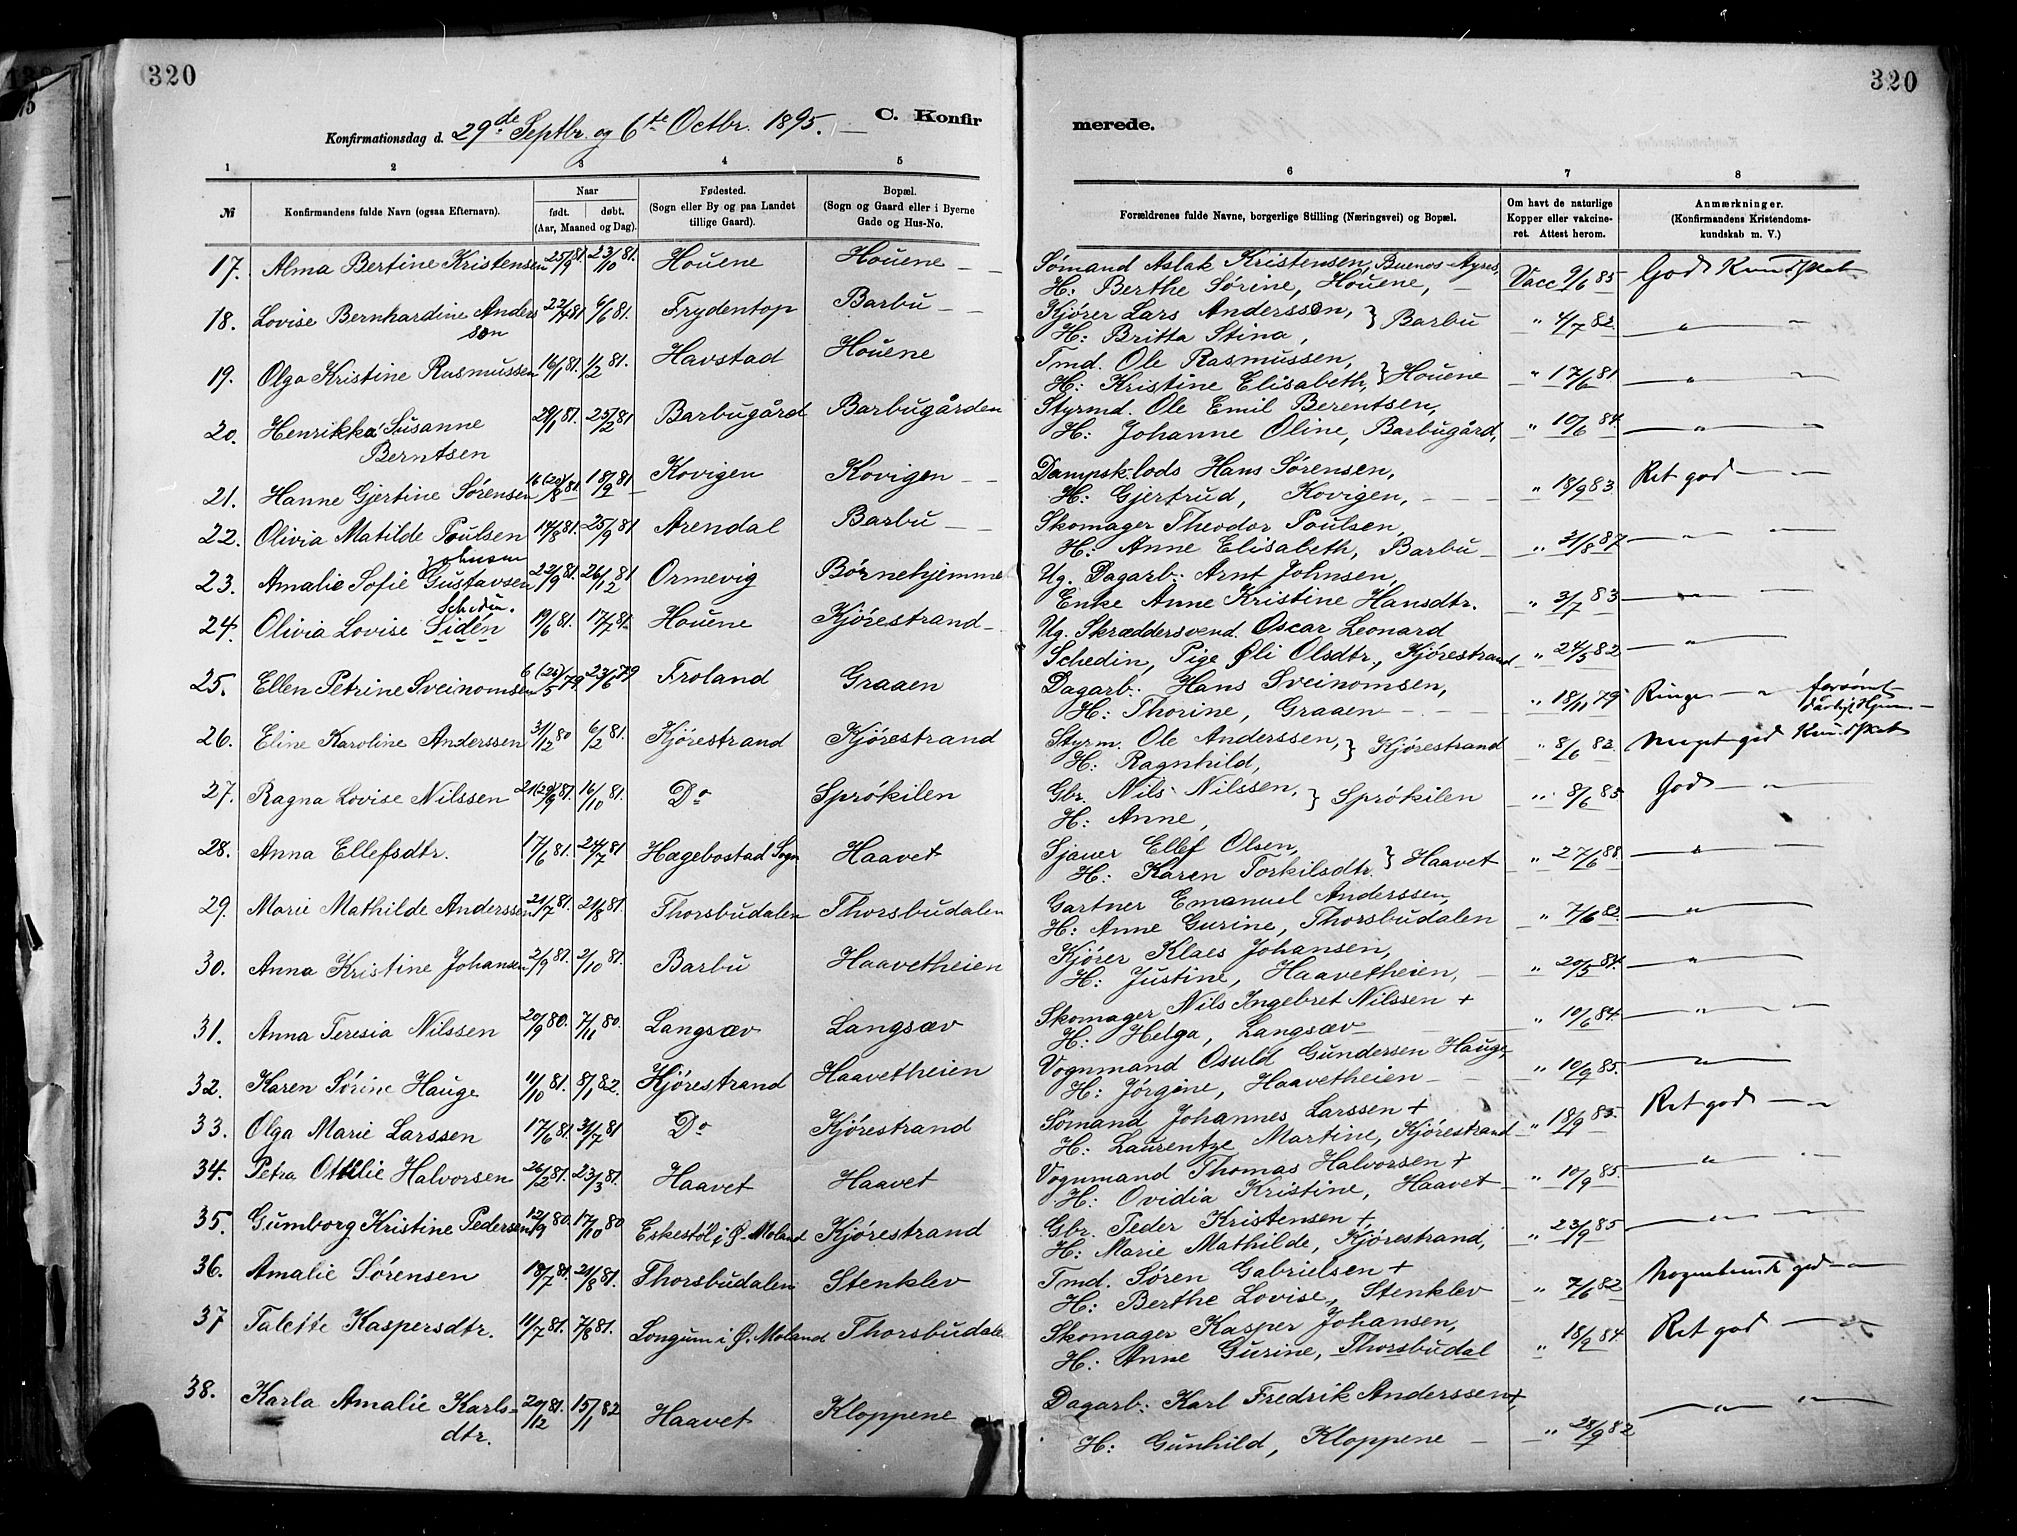 320
320
Konfirmationsdag d. 29de Septbr. og 6te Octbr. 1895. C. Konfirmerede.
1 2 3 4 5 6 7 8
№ Konfirmandens fulde Navn (ogsaa Efternavn). Naar født. døbt. (Aar, Maaned og Dag). Fødested. (Sogn eller By og paa Landet tillige Gaard). Bopæl. (Sogn og Gaard eller i Byerne Gade og Hus-No. Forældrenes fulde Navne, borgerlige Stilling (Næringsvei) og Bopæl. Om havt de naturlige Kopper eller vakcineret. Attest herom. Anmærkninger. (Konfirmandens Kristendomskundskab m. V.)
17. Alma Bertine Kristensen 25/9 81 23/10 81. Houene Houene Sømand Aslak Kristensen, Buenos-Ayres, Vacc 9/6 85 God Kundskab
H: Berthe Sørine, Houene,
18. Lovise Bernhardine Anderssøn 22/4 81 6/6 81. Frydentop Barbu Kjører Lars Anderssøn, } Barbu " 4/7 82 — " — "
H: Britta Stina,
19. Olga Kristine Rasmussen 16/1 81. 1/2 81. Havstad Houene Tmd. Ole Rasmussen, } Houene " 17/6 81 — " — "
H: Kristine Elisabeth,
20. Henrikka Susanne Berntsen 29/1 81. 25/2 81 Barbugård Barbugården Styrmd. Ole Emil Berentsen, " 10/6 84 — " — "
H: Johanne Oline, Barbugård,
21. Hanne Gjertine Sørensen 16(20)/8 81 18/9 81 Kovigen Kovigen Dampsk.lods Hans Sørensen, " 18/9 83 Ret god — "
H: Gjertrud, Kovigen,
22. Olivia Matilde Poulsen 14/8 81. 25/9 81 Arendal Barbu Skomager Theodor Poulsen, " 31/8 87 — " — "
H: Anne Elisabeth, Barbu
Johnsen
23. Amalie Sofie Gustavsen 22/9 81. 26/12 81 Ormevig Børnehjemme Ug. Dagarb. Arnt Johnsen, " 3/7 83 — " —
Enke Anne Kristine Hansdtr.
Schedin.
24. Olivia Lovise Sidén 19/6 81. 17/7 81 Houene Kjørestrand Ug. Skræddersvend. Oscar Leonard " 24/5 82 — " —
Schedin, Pige Øli Olsdtr., Kjørestrand
25. Ellen Petrine Sveinomsen 6(25)/5 79 23/6 79 Froland Graaen Dagarb. Hans Sveinomsen, " 18/11 79 Ringe — " forsømt
H: Thorine, Graaen
26. Eline Karoline Anderssen 31/12 80 6/2 81. Kjørestrand Kjørestrand Styrm. Ole Anderssen, } Kjørestrand " 8/6 82 Meget god Kundskab
H: Ragnhild,
27. Ragna Lovise Nilssen 21(29)/9 81. 16/10 81. Do Sprøkilen Gbr. Nils Nilssen, } Sprøkilen " 8/6 85 God — "
H: Anne,
28. Anna Ellefsdtr. 17/6 81. 24/7 81 Hægebostad Sogn Haavet Sjauer Ellef Olsen, } Haavet " 27/6 88. — " —
H: Karen Torkilsdtr.
29. Marie Mathilde Anderssen 21/7 81. 21/8 81. Thorsbudalen Thorsbudalen Gartner Emanuel Anderssen, " 7/6 82. — " —
H: Anne Gurine, Thorsbudalen
30. Anna Kristine Johansen 2/9 81. 2/10 81. Barbu Haavetheien Kjører Klaes Johansen, " 20/5 84. — " —
H: Justine, Haavetheien,
31. Anna Teresia Nilssen 20/9 80. 7/11 80. Langsæv Langsæv Skomager Nils Ingebret Nilssen + " 10/6 84. — " — "
H: Helga, Langsæv
32. Karen Sørine Hauge 11/10 81. 8/1 82. Kjørestrand Haavetheien Vognmand Osuld Gundersen Hauge, " 10/9 85. — " —
H: Jørgine, Haavetheien
33. Olga Marie Larssen 17/6 81. 31/7 81 Do Kjørestrand Sømand Johannes Larssen + " 18/9 85. Ret god — "
H: Laurentze Martine, Kjørestrand
34. Petra Ottilie Halvorsen 26/2 81. 23/3 81. Haavet Haavet Vognmand Thomas Halvorsen + " 10/9 85. — " — "
H: Ovidia Kristine, Haavet
35. Gumborg Kristine Pedersen 12/9 80. 17/10 80 Eskestøl i Ø. Moland Kjørestrand Gbr. Peder Kristensen +, " 23/9 85 — " — "
H: Marie Mathilde, Kjørestrand,
36. Amalie Sørensen 18/7 81. 21/8 81. Thorsbudalen Stenklev Tmd. Søren Gabrielsen + " 7/6 82 Nogenlunde god — "
H: Berthe Lovise, Stenklev
37 Talette Kaspersdtr. 11/7 81. 7/8 81. Longum i Ø. Moland Thorsbudalen Skomager Kasper Johansen, " 18/9 84 Ret god — "
H: Anne Gurine, Thorsbudal
38. Karla Amalie Karlsdtr. 20/12 81. 15/1 82 Haavet Kloppene Dagarb: Karl Fredrik Anderssen +, " 28/9 82 — " — "
H: Gunhild, Kloppene